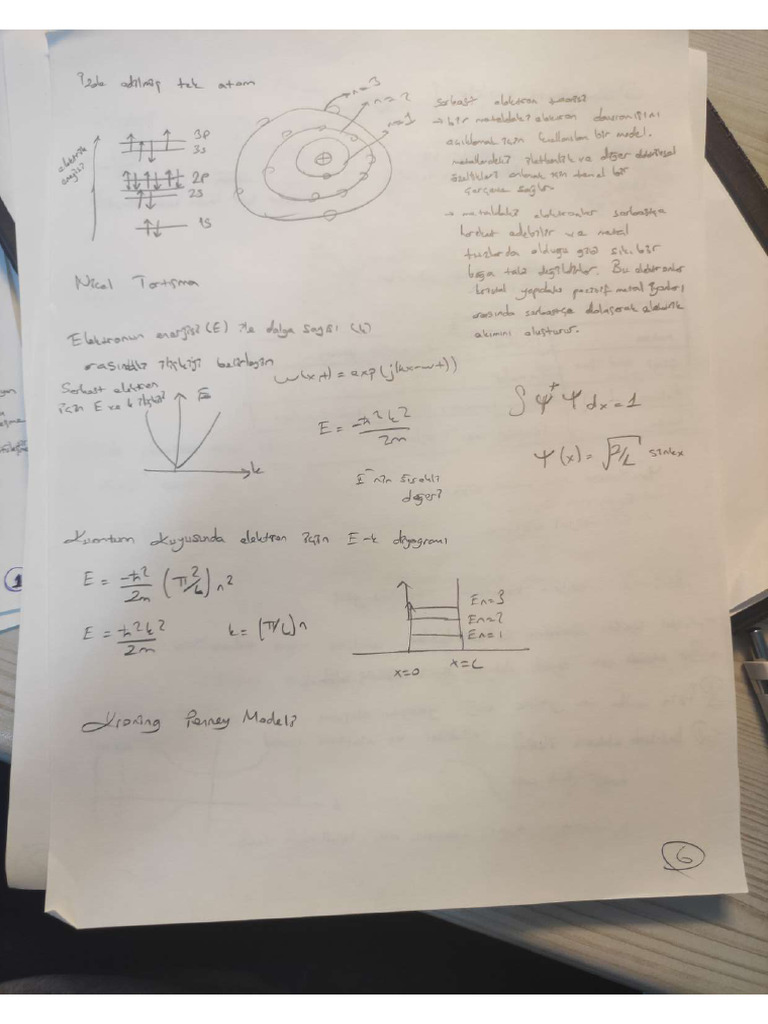 İzole edilmiş tek atom
n=3
n=2
n=1
elektron enerjisi
3p
3s
2p
2s
1s
serbest elektron teorisi
→ bir metaldeki elektron davranışını
açıklamak için kullanılan bir model.
metallerdeki iletkenlik ve diğer
özellikleri anlamak için temel bir
çerçeve sağlar.
→ metaldeki elektronlar serbestçe
hareket edebilir ve metal
tuzlarda olduğu gibi sıkı bir
bağa tabi değildirler. Bu elektronlar
kristal yapıdaki pozitif metal iyonları
arasında serbestçe dolaşarak elektrik
akımını oluşturur.
Nicel Tartışma
Elektronun enerjisi (E) ile dalga sayısı (k)
arasındaki ilişkiyi belirleyin
Serbest elektron
için E ve k ilişkisi
E
k
w(x,t) = exp(j(kx-wt))
E = ħ²k²/2m
E'nin sürekli
değeri
∫ψ*ψ dx = 1
ψ(x) = √2/L sinkx
Kuantum Kuyusunda elektron için E-k diyagramı
E = ħ²/2m (π²/L) n²
E = ħ²k²/2m k = (π/L) n
En=3
En=2
En=1
x=0 x=L
Kroning Penney Modeli
6
1